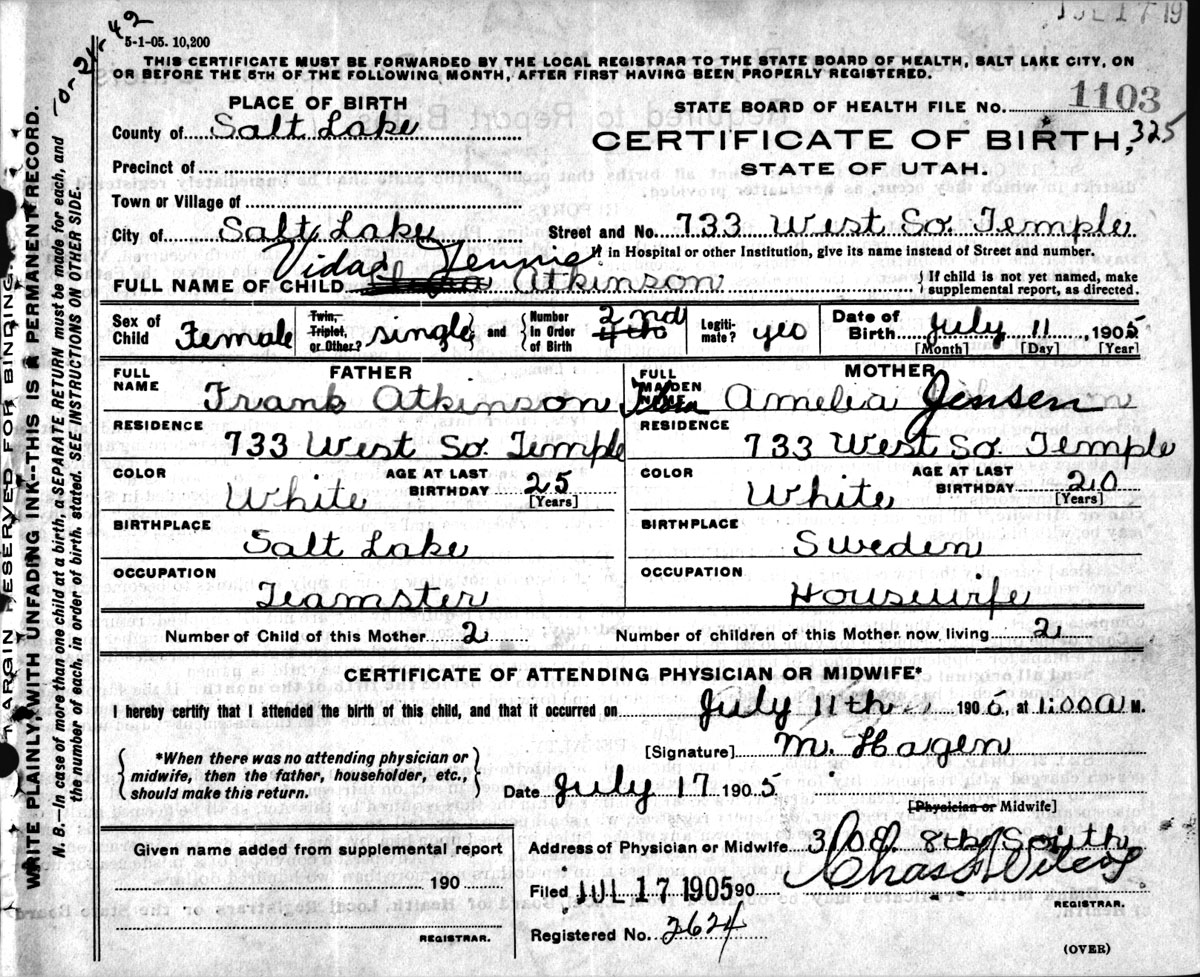 JUL 17 19
0-21-42
5-1-05. 10,200
THIS CERTIFICATE MUST BE FORWARDED BY THE LOCAL REGISTRAR TO THE STATE BOARD OF HEALTH, SALT LAKE CITY, ON
OR BEFORE THE 5TH OF THE FOLLOWING MONTH, AFTER FIRST HAVING BEEN PROPERLY REGISTERED.
MARGIN RESERVED FOR BINDING.
WRITE PLAINLY, WITH UNFADING INK--THIS IS A PERMANENT RECORD.
N. B.—In case of more than one child at a birth, a SEPARATE RETURN must be made for each, and
the number of each, in order of birth, stated. SEE INSTRUCTIONS ON OTHER SIDE.
PLACE OF BIRTH
STATE BOARD OF HEALTH FILE NO. 1103
County of Salt Lake
CERTIFICATE OF BIRTH, 325
Precinct of
STATE OF UTAH.
Town or Village of
City of Salt Lake Street and No. 733 West So. Temple
If in Hospital or other Institution, give its name instead of Street and number.
Vida Jennie
FULL NAME OF CHILD Atkinson { If child is not yet named, make supplemental report, as directed.
Sex of Child Female Twin, Triplet, or Other? single and Number in Order of Birth 2nd 4th Legiti-mate? yes Date of Birth July 11, 1905
[Month] [Day] [Year]
FATHER MOTHER
FULL NAME Frank Atkinson FULL MAIDEN NAME Amelia Jensen
RESIDENCE 733 West So. Temple RESIDENCE 733 West So. Temple
COLOR White AGE AT LAST BIRTHDAY 25 [Years] COLOR White AGE AT LAST BIRTHDAY 20 [Years]
BIRTHPLACE Salt Lake BIRTHPLACE Sweden
OCCUPATION Teamster OCCUPATION Housewife
Number of Child of this Mother 2 Number of children of this Mother now living 2
CERTIFICATE OF ATTENDING PHYSICIAN OR MIDWIFE*
I hereby certify that I attended the birth of this child, and that it occurred on July 11th 1905, at 1:00 A M.
*When there was no attending physician or
midwife, then the father, householder, etc.,
should make this return.
[Signature] M. Hagen
Date July 17 1905
[Physician or Midwife]
Given name added from supplemental report
190
REGISTRAR.
Address of Physician or Midwife 308 8th South
Filed JUL 17 1905 90 Chas
REGISTRAR.
Registered No. 2624
(OVER)